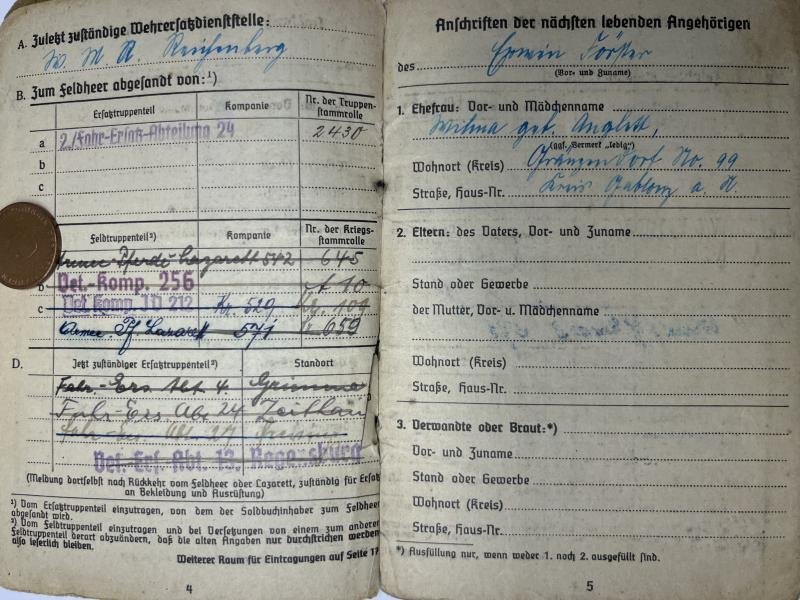 A. Zuletzt zuständige Wehrersatzdienststelle:
W. M. A. Reichenberg
B. Zum Feldheer abgesandt von:¹)
Ersatztruppenteil Kompanie Nr. der Truppen-
stammrolle
a 2./Fahr-Ersatz-Abteilung 24 2430
b
c
Feldtruppenteil²) Kompanie Nr. der Kriegs-
stammrolle
Pferde Lazarett 542 645
b Vet.-Komp. 256 10
c Vet. Komp. ID 212 Kr. 529 109
Armee Pf. Lazarett 571 659
D. Jetzt zuständiger Ersatztruppenteil²) Standort
Fahr-Ers. Abt. 4. Grimma
Fahr-Ers. Abt. 24 Zeithain
Fahr-Ers. Abt. 27
Vet. Ers. Abt. 13. Regensburg
(Meldung dortselbst nach Rückkehr vom Feldheer oder Lazarett, zuständig für Ersatz
an Bekleidung und Ausrüstung)
¹) Vom Ersatztruppenteil einzutragen, von dem der Soldbuchinhaber zum Feldheer
abgesandt wird.
²) Vom Feldtruppenteil einzutragen und bei Versetzungen von einem zum anderen
Feldtruppenteil derart abzuändern, daß die alten Angaben nur durchstrichen werden,
also leserlich bleiben.
Weiterer Raum für Eintragungen auf Seite 17
4
Anschriften der nächsten lebenden Angehörigen
des Erwin Förster
(Vor- und Zuname)
1. Ehefrau: Vor- und Mädchenname
Wilma geb. Anglett,
(ggf. Vermerk „ledig“)
Wohnort (Kreis) Gränzendorf No. 99
Straße, Haus-Nr. Kreis Gablonz a. N.
2. Eltern: des Vaters, Vor- und Zuname
Stand oder Gewerbe
der Mutter, Vor- u. Mädchenname
Wohnort (Kreis)
Straße, Haus-Nr.
3. Verwandte oder Braut:*)
Vor- und Zuname
Stand oder Gewerbe
Wohnort (Kreis)
Straße, Haus-Nr.
*) Ausfüllung nur, wenn weder 1. noch 2. ausgefüllt sind.
5